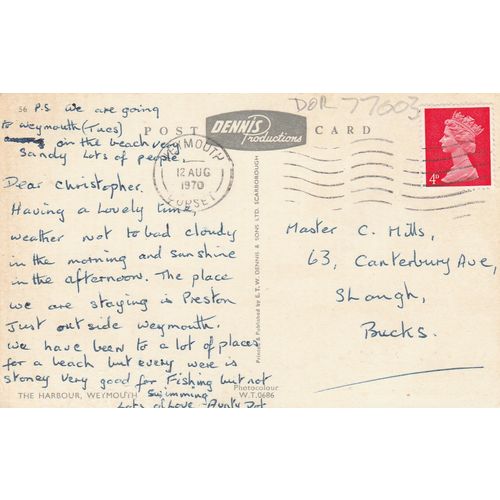 56 P.S we are going
to weymouth (Tues)
on the beach very
Sandy Lots of people.
DOR 77603
POST CARD
DENNIS
Productions
WEYMOUTH
12 AUG
1970
DORSET
4P
Dear Christopher.
Having a Lovely time,
weather not to bad cloudy
in the morning and sunshine
in the afternoon. The place
we are staying is Preston
Just outside weymouth.
we have been to a lot of places
for a beach but every were is
stoney very good for Fishing but not
swimming
Lots of Love - Aunty Dot
Printed & Published by E.T.W. DENNIS & SONS LTD. SCARBOROUGH
Master C. Mills,
63, Canterbury Ave,
Slough,
Bucks.
THE HARBOUR, WEYMOUTH
Photocolour
W.T.0686